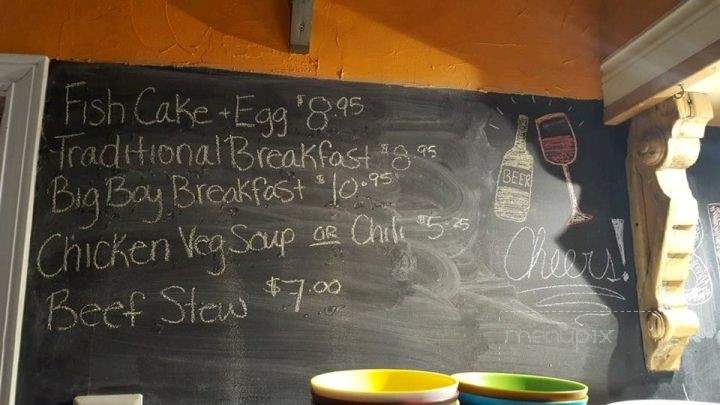 Fish Cake + Egg $8.95
Traditional Breakfast $8.95
Big Boy Breakfast $10.95
Chicken Veg Soup OR Chili $5.25
Beef Stew $7.00
BEER
Cheers!
menupix